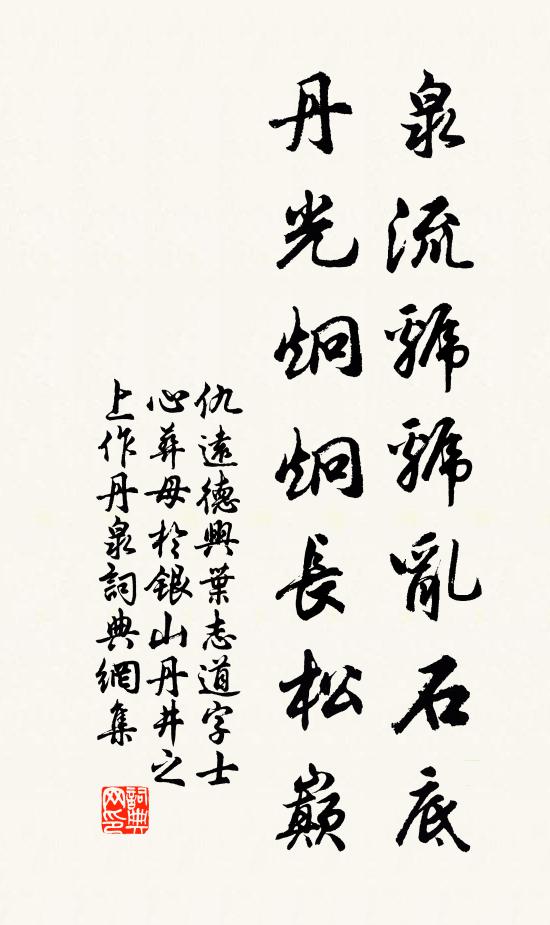 泉流虢虢亂石底
丹光炯炯長松巔
仇遠德興葉志道字士
心葬母於銀山丹井之
上作丹泉詞典網集
詞典网印